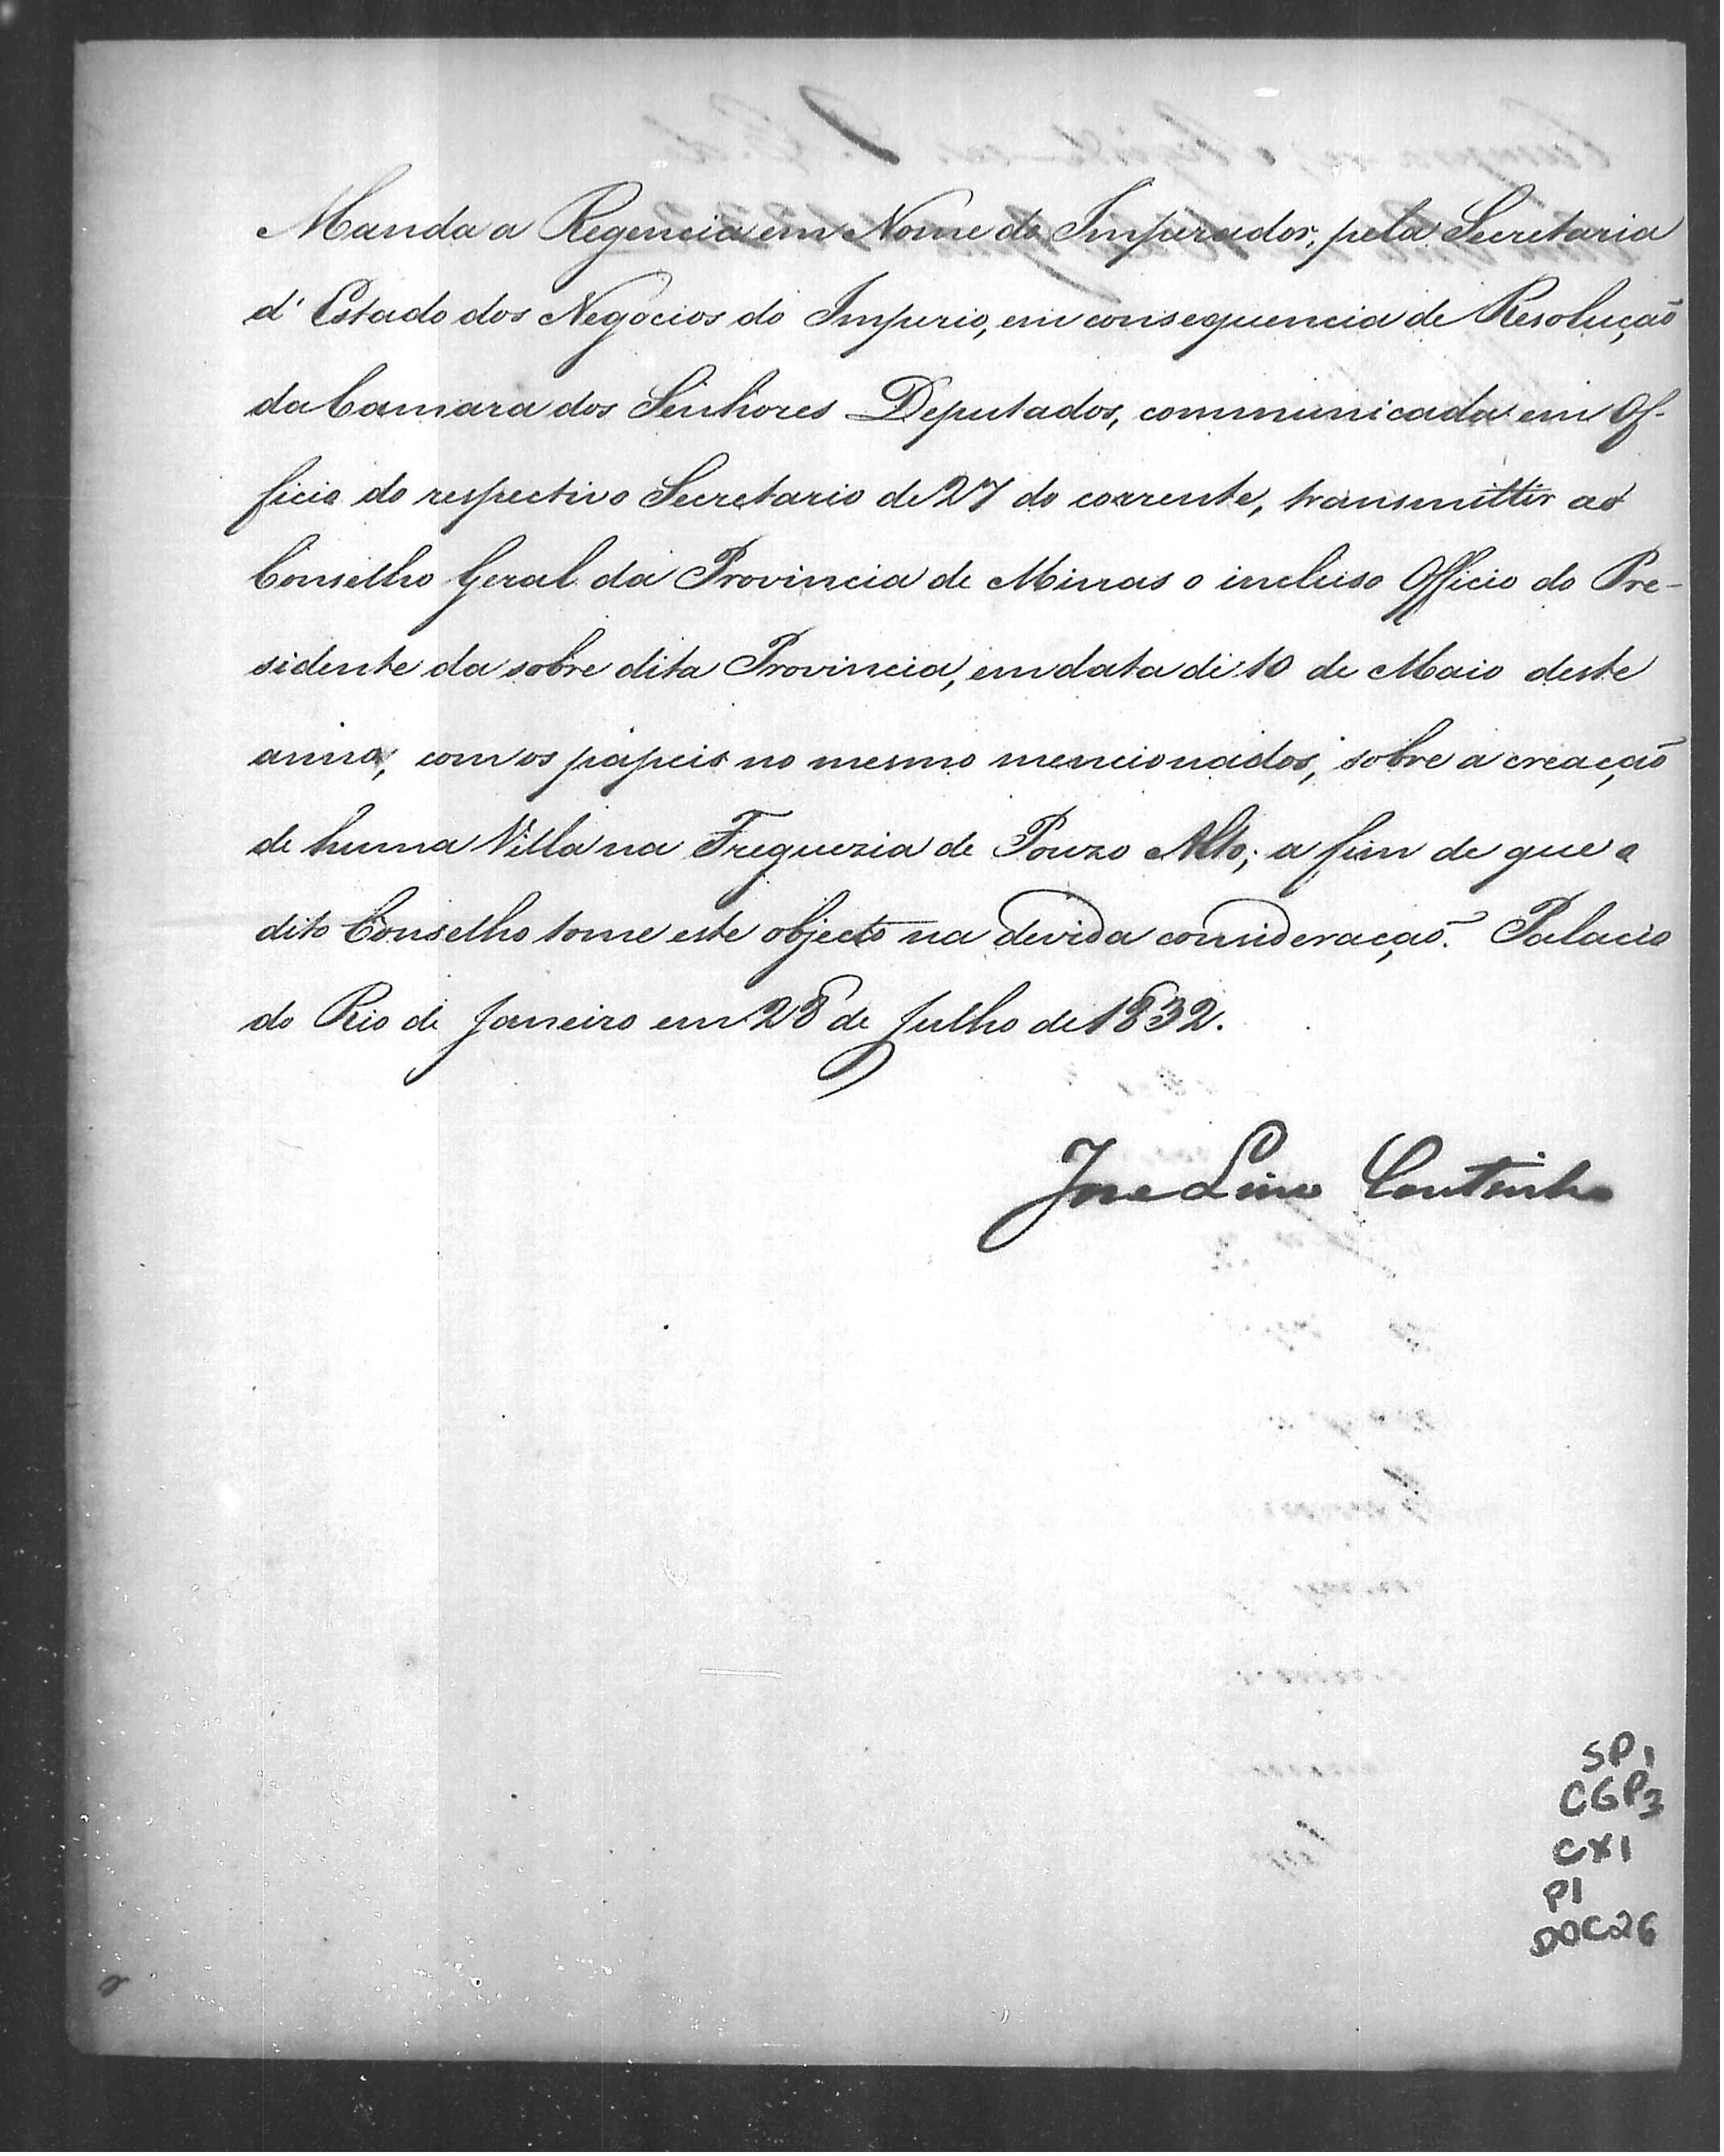 Manda a Regencia em Nome do Imperador, pela Secretaria
d'Estado dos Negocios do Imperio, em consequencia de Resolução
da Camara dos Senhores Deputados, communicada em Of-
ficio do respectivo Secretario de 27 do corrente, transmittir ao
Conselho Geral da Provincia de Minas o incluso Officio do Pre-
sidente da sobre dita Provincia, em data de 10 de Maio deste
anno, com os papeis no mesmo mencionados, sobre a creação
de huma Villa na Freguezia de Pouzo Alto; a fim de que o
dito Conselho tome este objecto na devida consideração. Palacio
do Rio de Janeiro em 28 de Julho de 1832.
Jose Lino Coutinho
SP1
CGP3
CX1
P1
DOC26